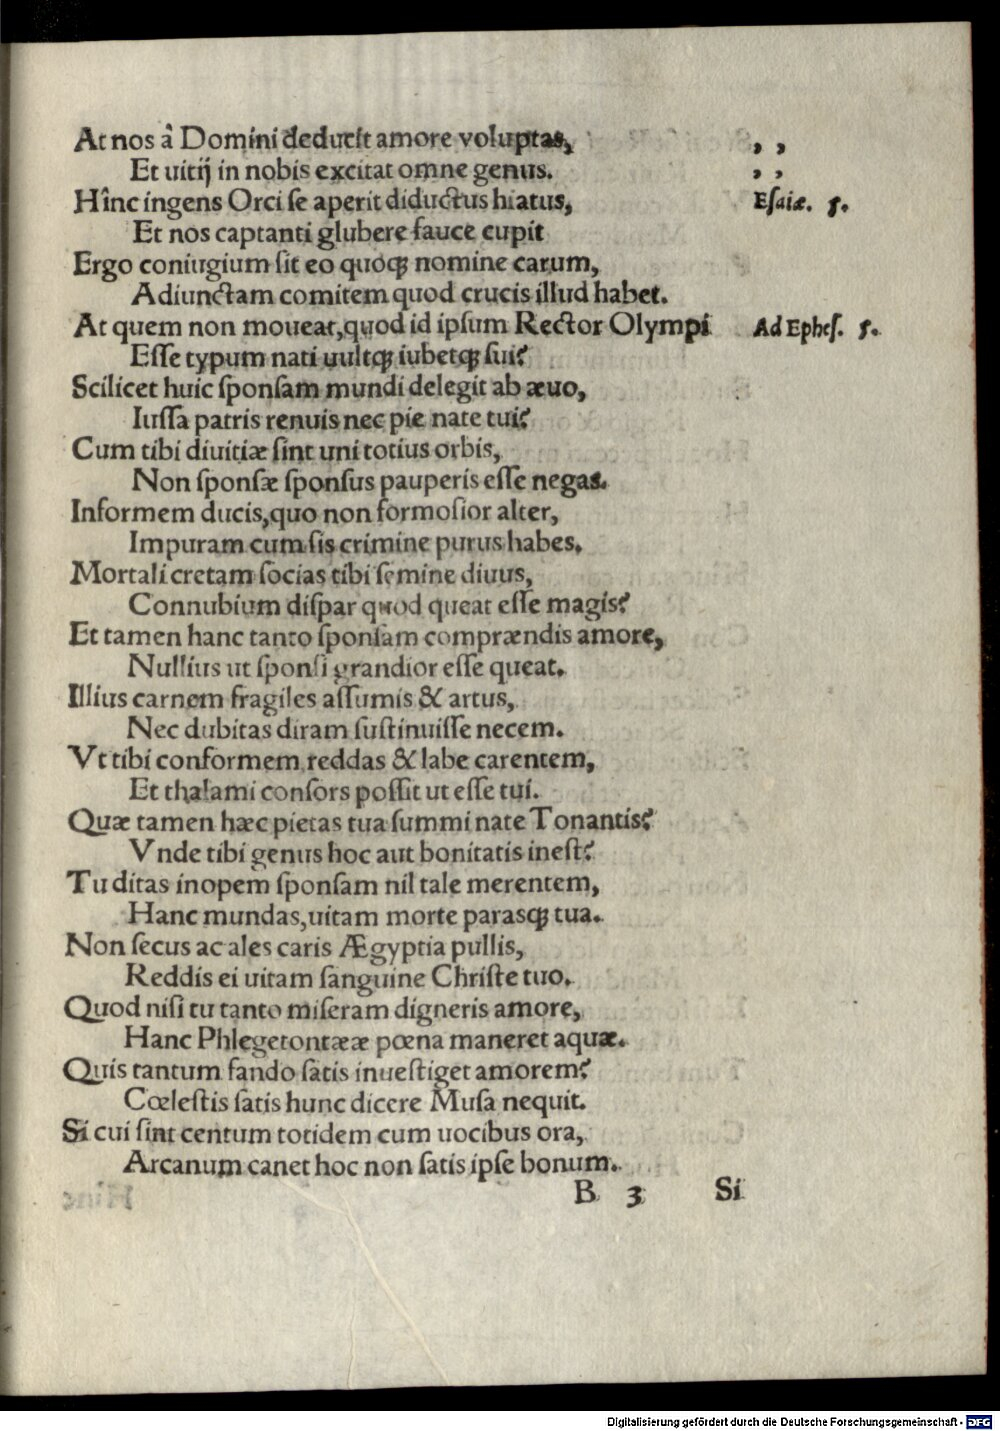 At nos â Domini deducit amore voluptas, , ,
Et uitij in nobis excitat omne genus. , ,
Hînc ingens Orci se aperit diductus hiatus, Esaiæ. 5.
Et nos captanti glubere fauce cupit
Ergo coniugium sit eo quoqꝫ nomine carum,
Adiunctam comitem quod crucis illud habet.
At quem non moueat, quod id ipsum Rector Olympi Ad Ephes. 5.
Esse typum nati uultqꝫ iubetqꝫ sui?
Scilicet huic sponsam mundi delegit ab æuo,
Iussa patris renuis nec pie nate tui?
Cum tibi diuitiæ sint uni totius orbis,
Non sponsæ sponsus pauperis esse negas.
Informem ducis, quo non formosior alter,
Impuram cum sis crimine purus habes.
Mortali cretam socias tibi semine diuus,
Connubium dispar quod queat esse magis?
Et tamen hanc tanto sponsam comprændis amore,
Nullius ut sponsi grandior esse queat.
Illius carnem fragiles assumis & artus,
Nec dubitas diram sustinuisse necem.
Vt tibi conformem reddas & labe carentem,
Et thalami consors possit ut esse tui.
Quæ tamen hæc pietas tua summi nate Tonantis?
Vnde tibi genus hoc aut bonitatis inest?
Tu ditas inopem sponsam nil tale merentem,
Hanc mundas, uitam morte parasqꝫ tua.
Non secus ac ales caris Ægyptia pullis,
Reddis ei uitam sanguine Christe tuo.
Quod nisi tu tanto miseram digneris amore,
Hanc Phlegetontææ pœna maneret aquæ.
Quis tantum fando satis inuestiget amorem?
Cœlestis satis hunc dicere Musa nequit.
Si cui sint centum totidem cum uocibus ora,
Arcanum canet hoc non satis ipse bonum.
B 3 Si
Digitalisierung gefördert durch die Deutsche Forschungsgemeinschaft - DFG